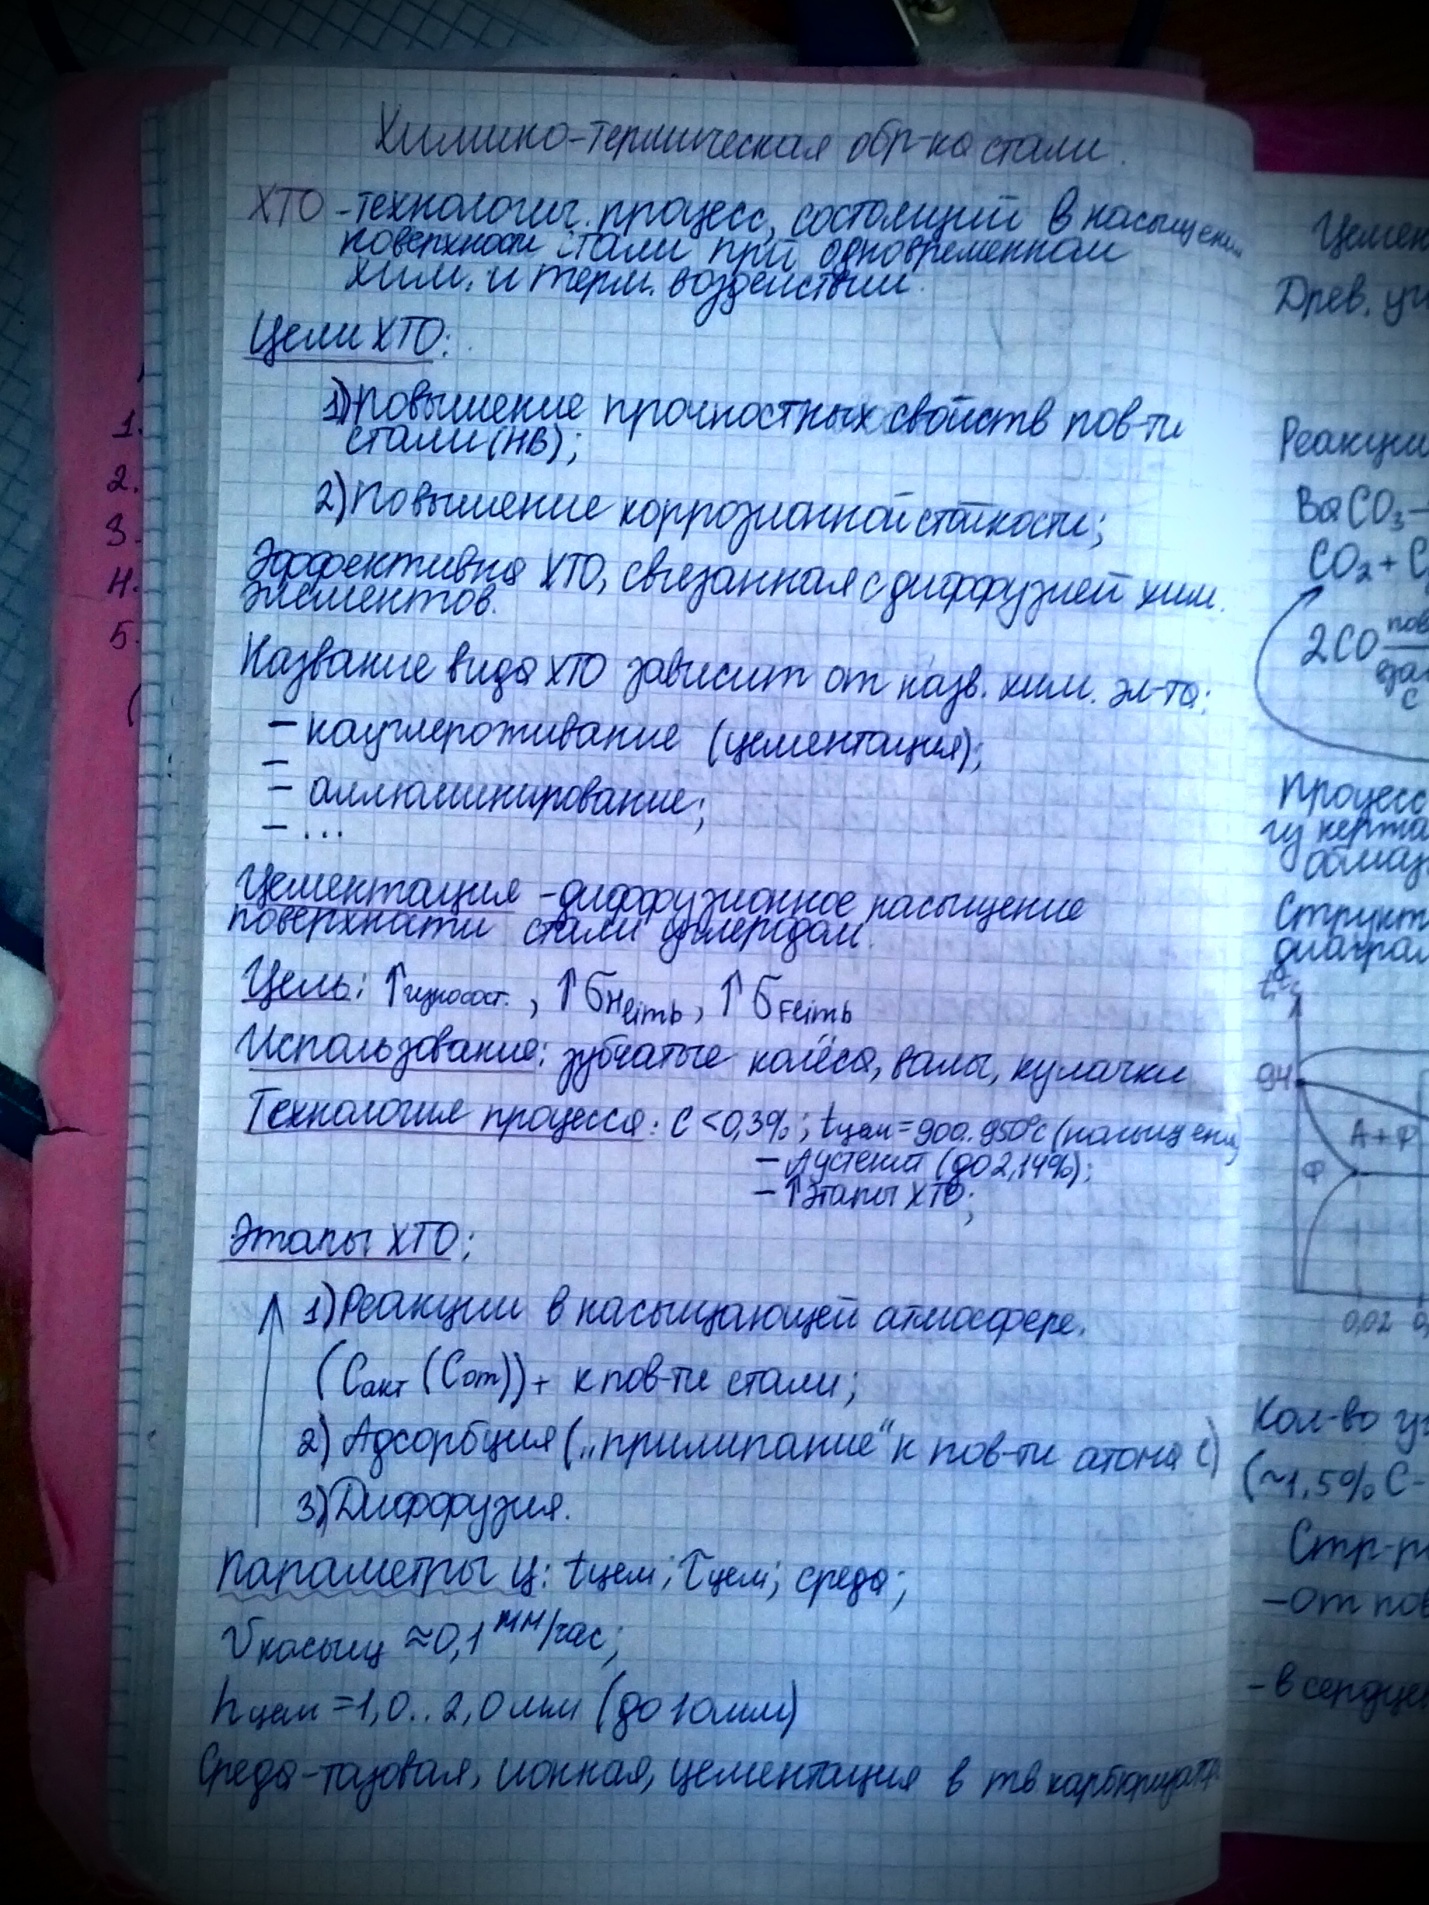 Химико-термическая обр-ка стали.
ХТО - технологич. процесс, состоящий в насыщении
поверхности стали при одновременном
хим. и терм. воздействии.
Цели ХТО:
1) Повышение прочностных свойств пов-ти
стали (HB);
2) Повышение коррозионной стойкости;
Эффективна ХТО, связанная с диффузией хим.
элементов.
Название вида ХТО зависит от назв. хим. эл-та:
- науглероживание (цементация);
-
- аллюминирование;
- ...
Цементация - диффузионное насыщение
поверхности стали углеродом.
Цель: ↑износост., ↑σHlimb, ↑σFlimb
Использование: зубчатые колёса, валы, кулачки
Технология процесса: C < 0,3%; tцем = 900..950°C (насыщение)
- Аустенит (до 2,14%);
- ↑этапы ХТО;
Этапы ХТО:
1) Реакции в насыщающей атмосфере.
(Cакт (Cат)) + к пов-ти стали;
2) Адсорбция („прилипание“ к пов-ти атома C)
3) Диффузия.
Параметры Ц: tцем; τцем; среда;
Vнасыщ ≈ 0,1 мм/час;
hцем = 1,0..2,0 мм (до 10 мм)
Среда - газовая, ионная, цементация в тв карбюризаторе
1.
2.
3.
4.
5.
Цемен
Древ. уг
Реакции
BaCO3 -
CO2 + C
2CO пов
C
Процесс
Структ
диаграм
t,°C
911
А+Ф
Ф
0,02 0,
Кол-во уг
(~1,5% C -
Стр-р
- от пов
- в сердцев